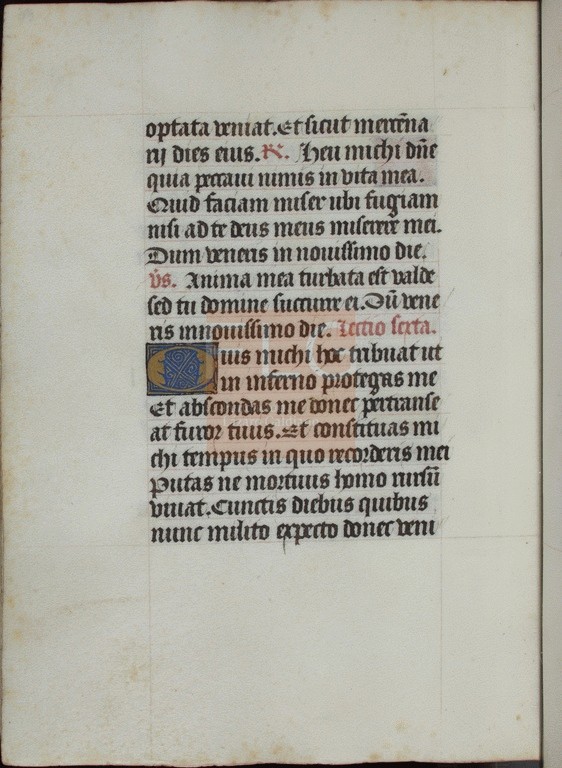 optata veniat. Et sicut mercēna
rij dies eius. R. Heu michi dn̄e
quia peccaui nimis in vita mea.
Quid faciam miser ubi fugiam
nisi ad te deus meus miserere mei.
Dum veneris in nouissimo die.
v̄s. Anima mea turbata est valde
sed tu domine succurre ei. Dū vene
ris in nouissimo die. Lectio sexta.
Quis michi hoc tribuat ut
in inferno protegas me
Et abscondas me donec pertranse
at furor tuus. Et constituas mi
chi tempus in quo recorderis mei
Putas ne mortuus homo rursū
viuat. Cunctis diebus quibus
nunc milito expecto donec veni